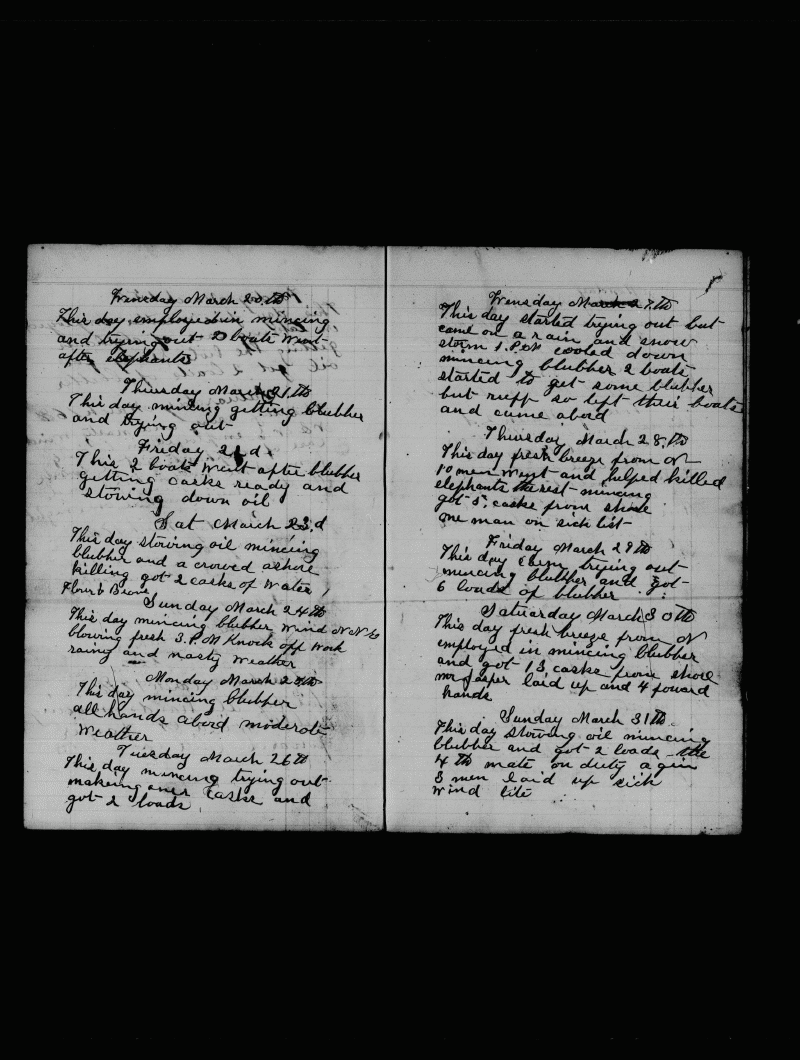 Wensday March 20.th
This day employed in mincing
and trying out 2 boats went
after elephants
Thursday March 21th
This day mincing getting blubber
and trying out
Friday 22d.
This 2 boats went after blubber
getting casks ready and
stowing down oil
Sat March 23.d
This day stowing oil mincing
blubber and a crowed ashore
killing got 2 casks of water,
Flour &
Sunday March 24th
This day mincing blubber wind
blowing fresh 3.P.M Knock off work
rainy and nasty weather
Monday March 25th
This day mincing blubber
all hands abord moderate
weather
Tuesday March 26th
This day mincing trying out
makeing over casks and
got 2 loads
8
Wensday March 27th
This day started trying out but
came on a rain and snow
storm 1.P.M cooled down
mincing blubber 2 boats
started to get some blubber
but ruff so left their boats
and came abord
Thursday March 28.th
This day fresh breeze from N
10 men went and helped killed
elephants the rest mincing
got 5. casks from shore
one man on sick list
Friday March 29th
This day trying out
mincing blubber and got
6 loads of blubber
Saturday March 30th
This day fresh breeze from N
employed in mincing blubber
and got 13 casks from shore
mr Jasper laid up and 4 foward
hands
Sunday March 31th.
This day stowing oil mincing
blubber and got 2 loads the
4th mate on duty agin
3 men laid up sick
wind lite